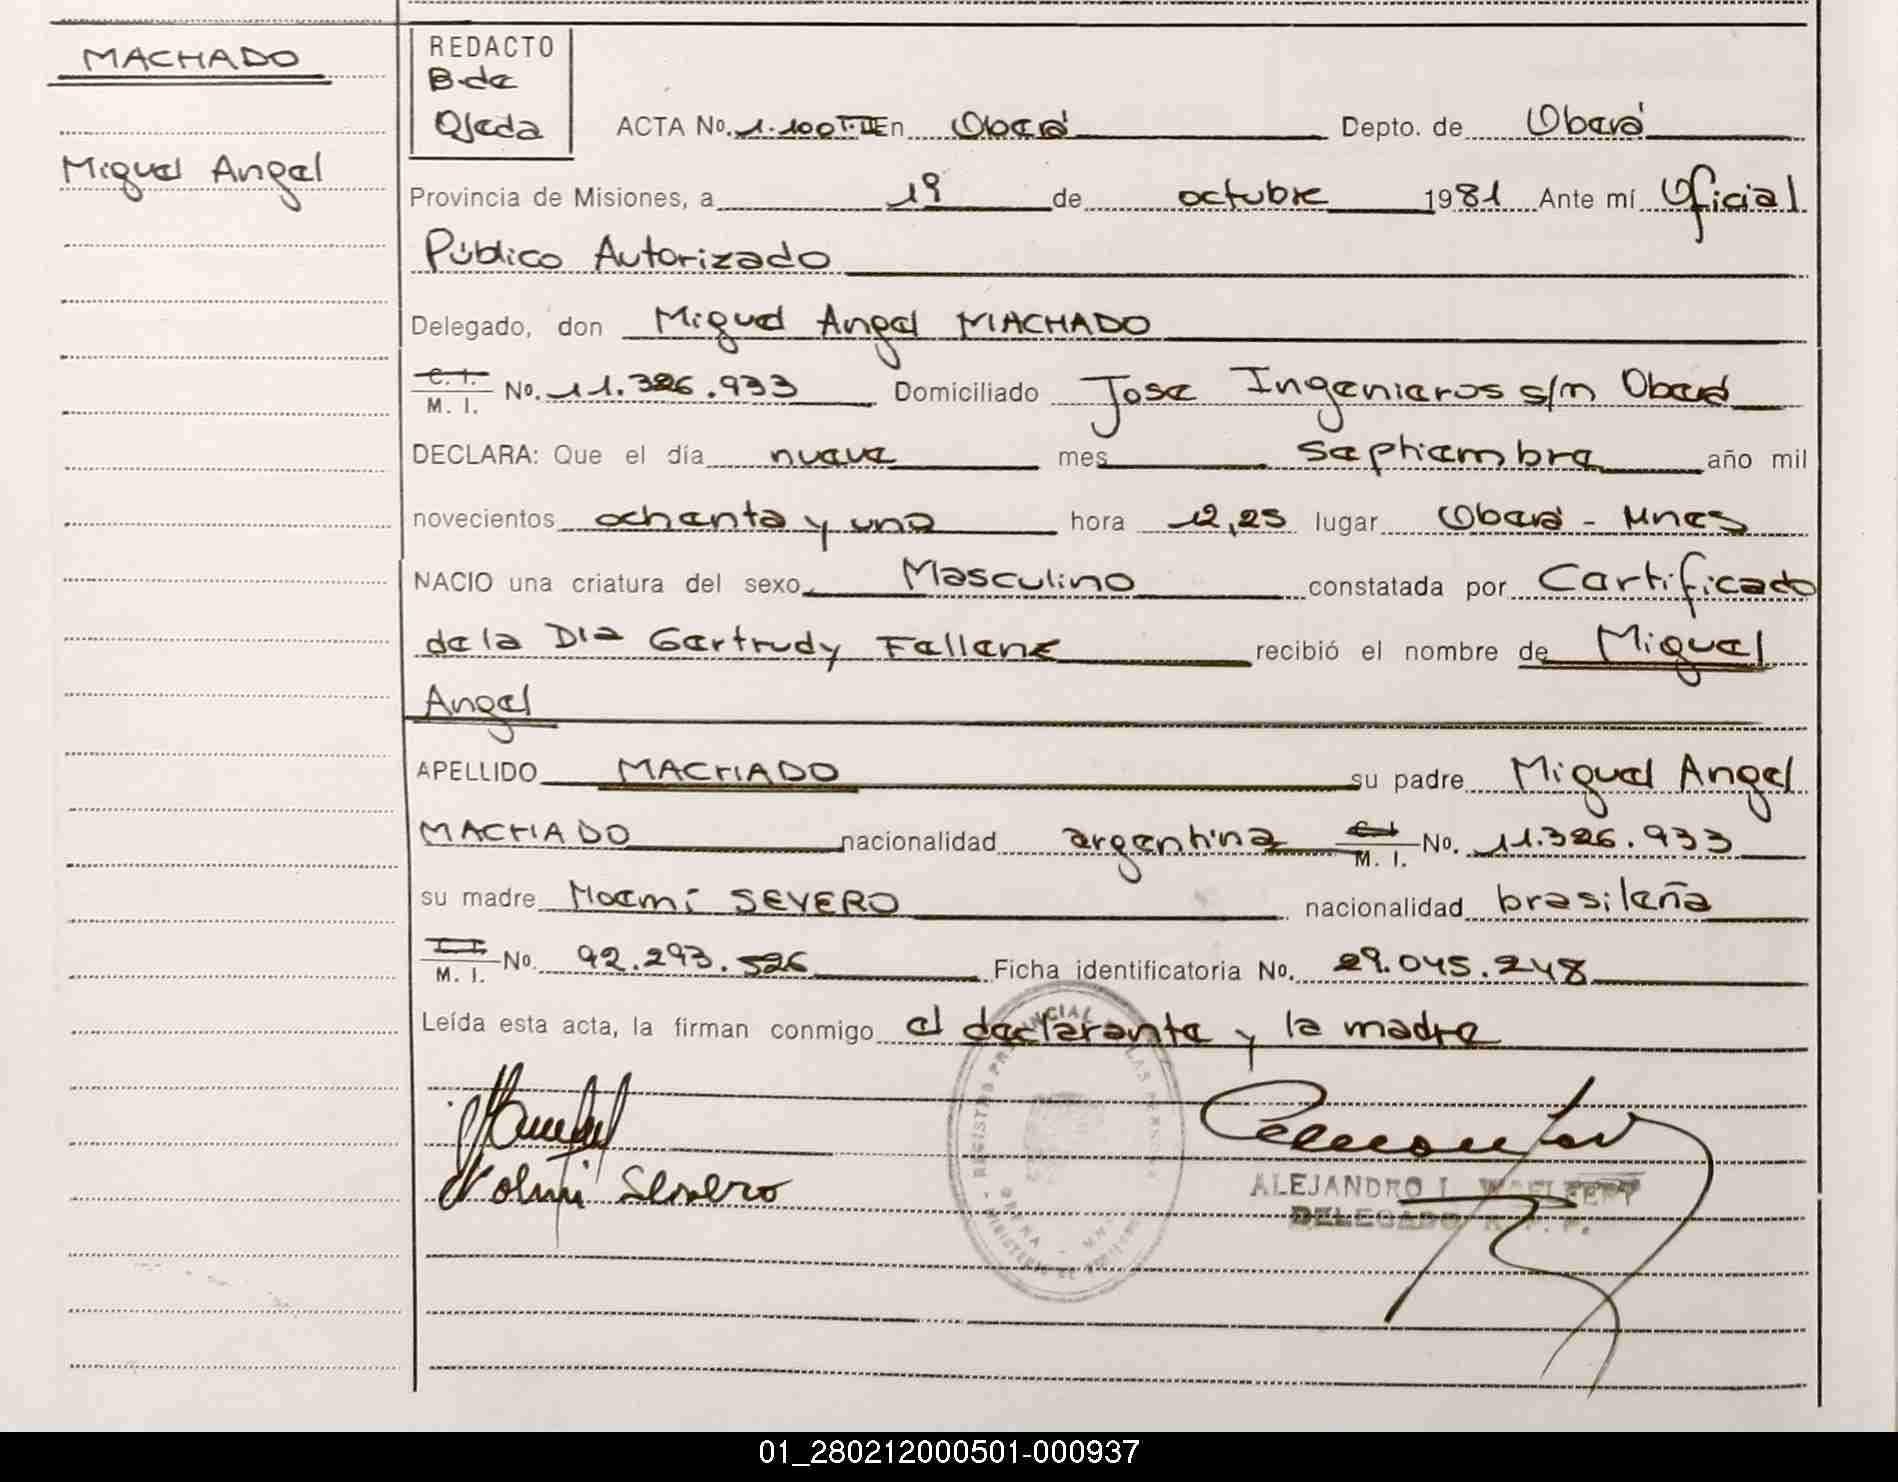 MACHADO
Miguel Angel
REDACTO
B. de
Ojeda
ACTA No. 1.100 T. II En Oberá Depto. de Oberá
Provincia de Misiones, a 1º de octubre 1981 Ante mí Oficial
Público Autorizado
Delegado, don Miguel Angel MACHADO
C. I. M. I. No. 11.326.933 Domiciliado Jose Ingenieros s/n Oberá
DECLARA: Que el día nueve mes septiembre año mil
novecientos ochenta y uno hora 12,25 lugar Oberá - Mnes
NACIO una criatura del sexo Masculino constatada por Certificado
de la Dra Gertrudy Fallenz recibió el nombre de Miguel
Angel
APELLIDO MACHADO su padre Miguel Angel
MACHADO nacionalidad argentina C. I. M. I. No. 11.326.933
su madre Noemí SEVERO nacionalidad brasileña
M. I. No. 92.293.526 Ficha identificatoria No. 29.045.248
Leída esta acta, la firman conmigo el declarante y la madre
Noemi Severo
ALEJANDRO L. WOELFERT
DELEGADO R. P. P.
REGISTRO PROVINCIAL DE LAS PERSONAS
OBERA - MNES
MINISTERIO DE GOBIERNO
01_280212000501-000937